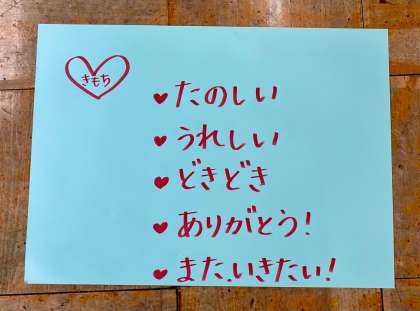 きもち
♥たのしい
♥うれしい
♥どきどき
♥ありがとう!
♥また、いきたい!